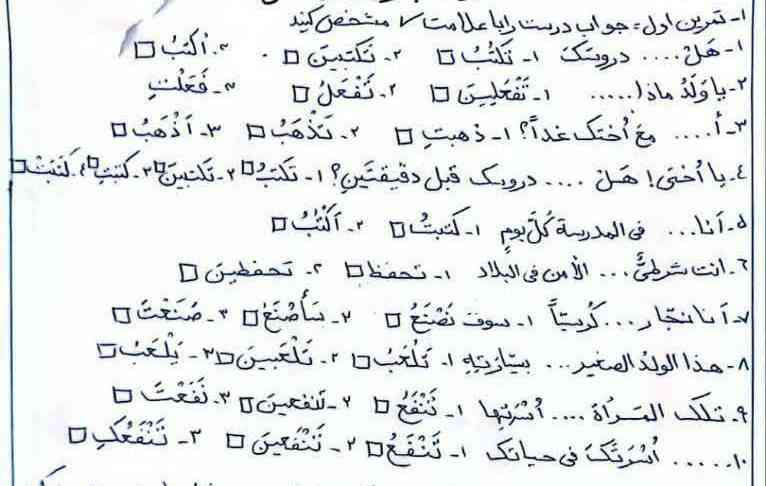 ۱- تمرین اول: جواب درست را با علامت ✓ مشخص کنید
۱- هَلْ .... دروسَکَ ۱- تَکتُبُ □ ۲- تَکتبینَ □ ۳- اُکتُبُ □
۲- یا وَلَدُ ماذا ..... ۱- تَفْعَلِینَ □ ۲- تَفْعَلُ □ ۳- فَعَلْتِ
۳- أ .... مَعَ اُختک غداً؟ ۱- ذهبتِ □ ۲- تَذْهَبُ □ ۳- اَذْهَبُ □
٤- یا اُختی! هَلْ .... دروسک قبل دقیقتَینِ؟ ۱- تَکتبُ □ ۲- تکتبینَ □ ۳- کتبتِ □ ٤- کَتَبَتْ □
۵- اَنا ... فی المدرسة کُلَّ یومٍ ۱- کتبتُ □ ۲- اَکْتُبُ □
۶- انت شرطیٌّ ... الأمن فی البلاد ۱- تحفظ □ ۲- تحفظینَ □
۷- اَنا نجّار ... کُرسیّاً ۱- سوف نَصْنَعُ □ ۲- سَأَصْنَعُ □ ۳- صَنَعْتَ □
۸- هذا الولدُ الصغیر ... بسیّارتِهِ ۱- تَلْعَبُ □ ۲- تَلْعَبینَ □ ۳- یَلْعَبُ □
۹- تلک المَرأة .... اُسْرَتِها ۱- تَنْفَعُ □ ۲- تنفعینَ □ ۳- نَفَعْتَ □
۱۰- ..... اُسْرَتَکَ فی حیاتک ۱- تَنْفَعُ □ ۲- تَنْفَعینَ □ ۳- تَنْفَعُکِ □